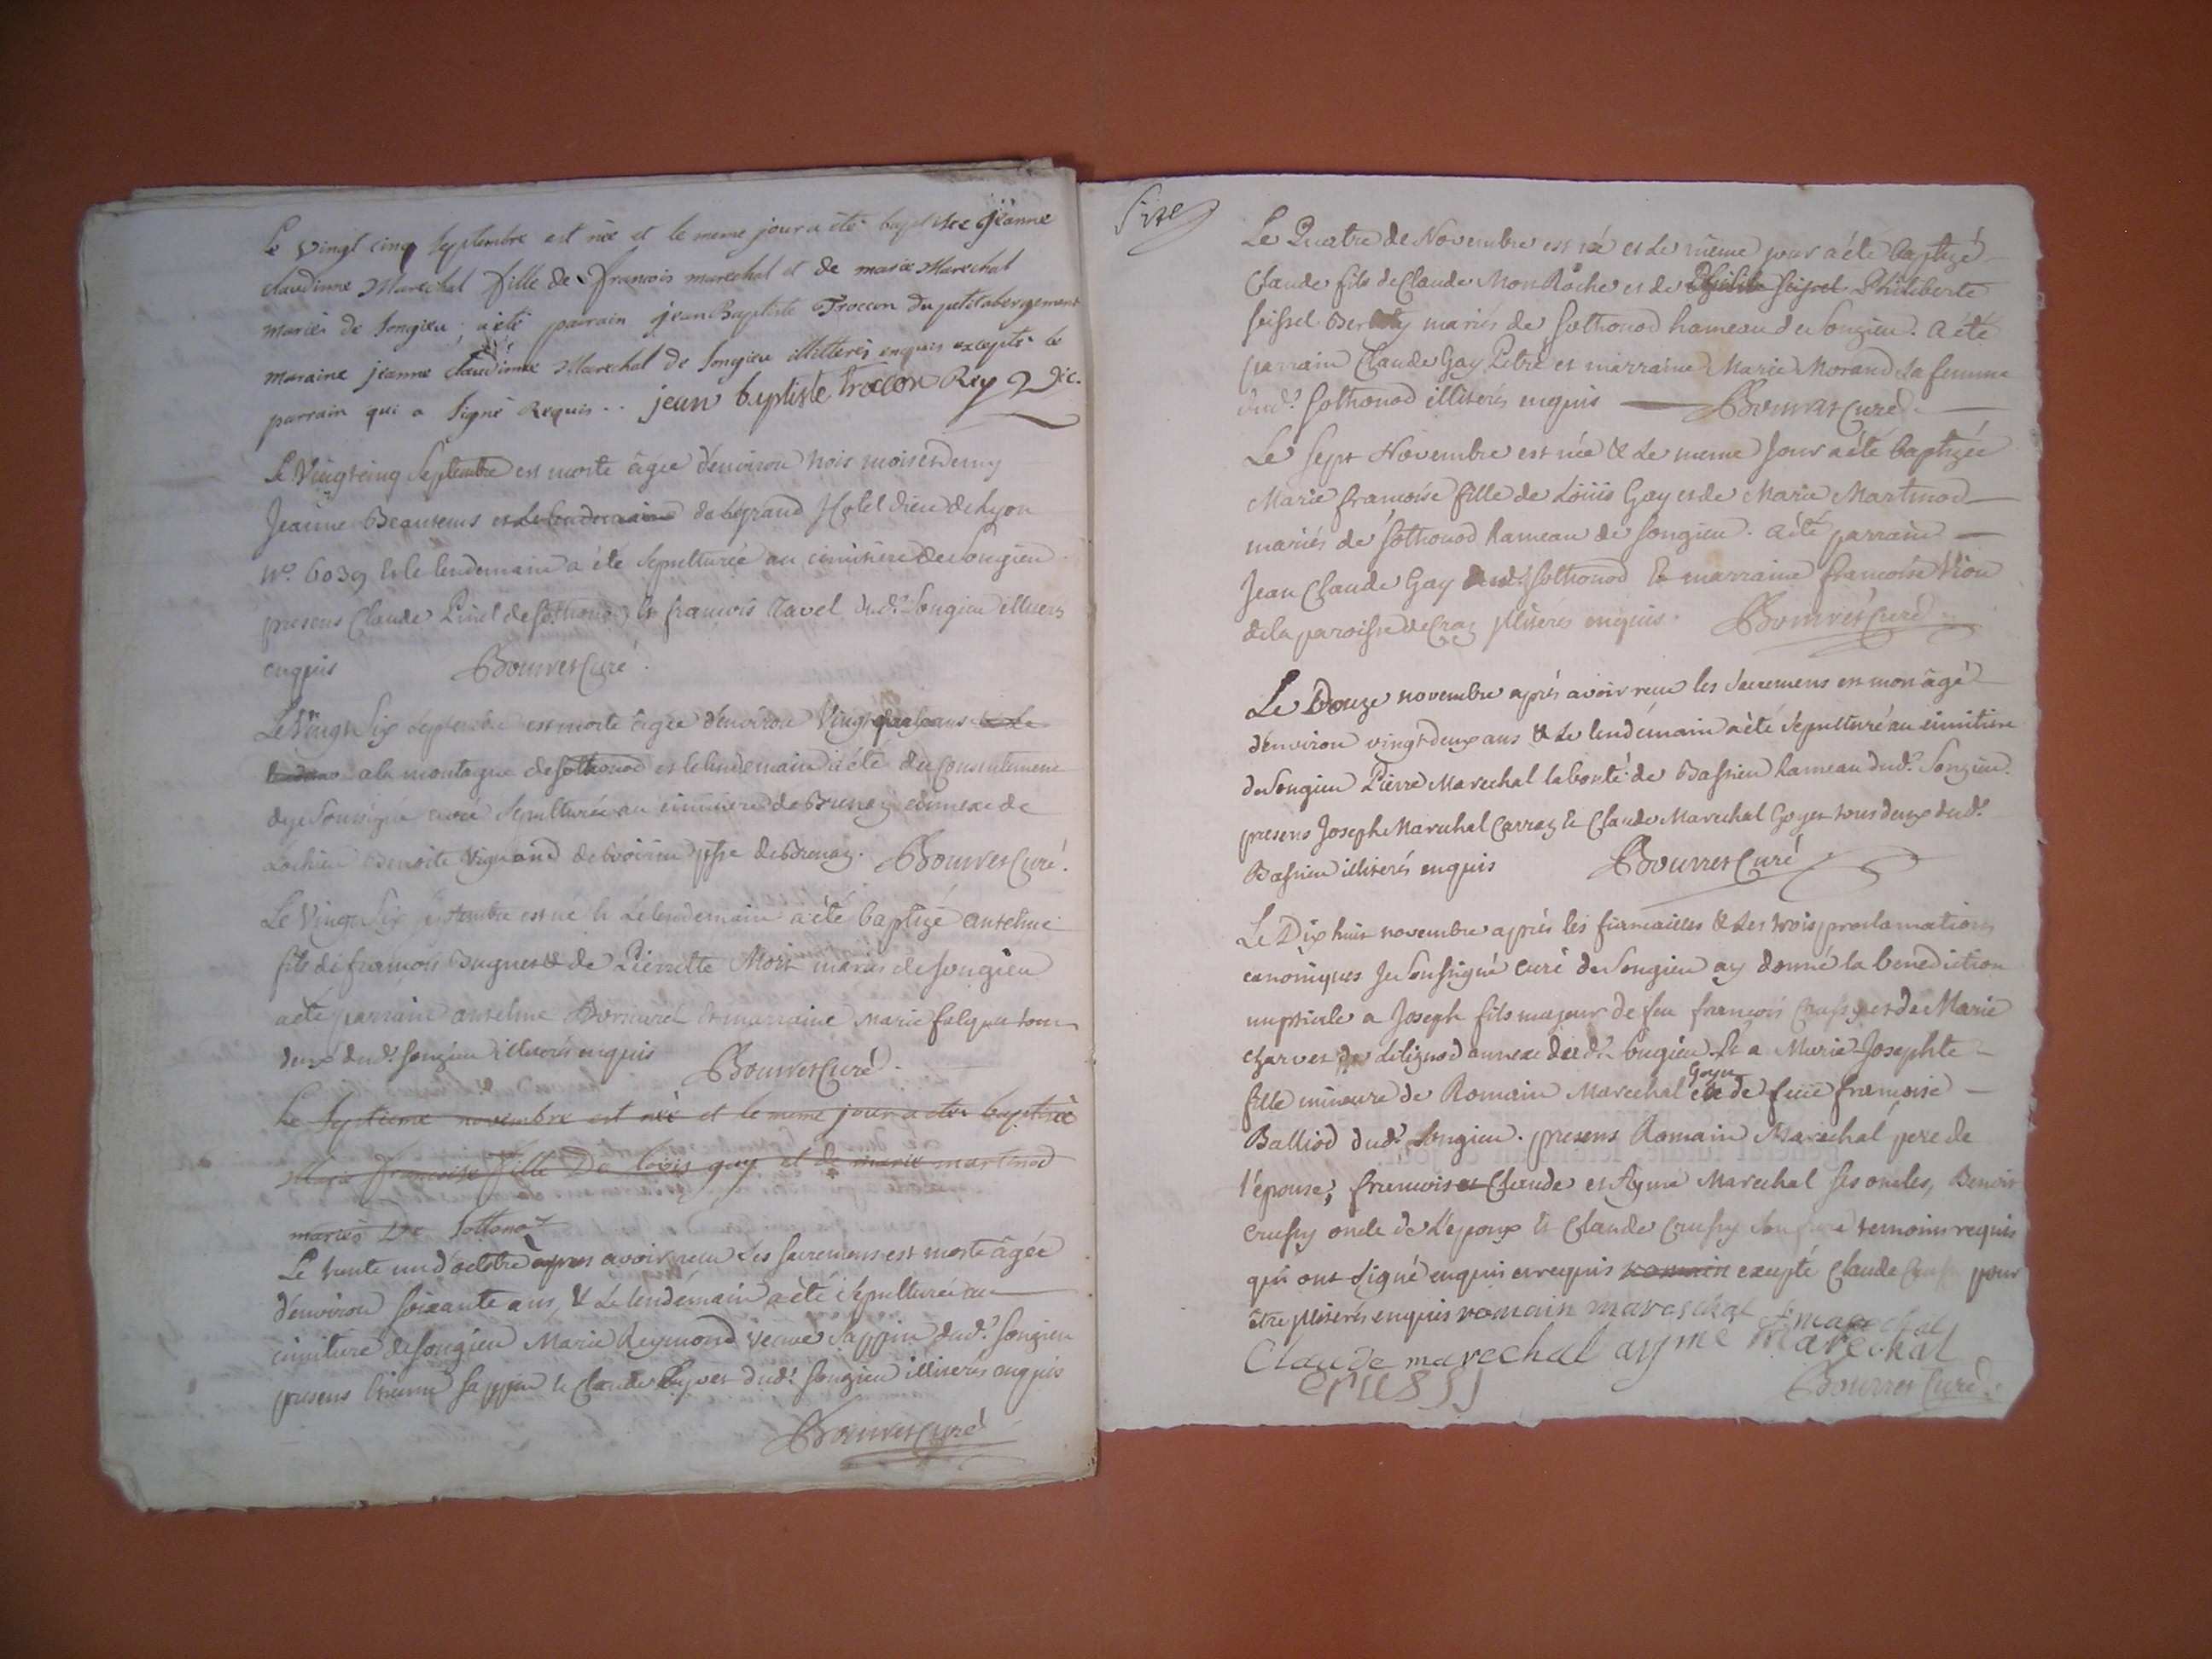 Le vingt cinq septembre est née et le meme jour a été baptisée jeanne
claudinne Marechal fille de francois marechal et de marie Marechal
mariés de songieu; a été parrain jean Baptiste Troccon du petit abergement
maraine jeanne claudinne Marechal de songieu illitterés enquis excepté le
parrain qui a signé Requis .. jean baptiste troccon Rey Vic.
Le Vingt cinq Septembre est morte âgée d'environ trois mois et demy
Jeanne Beausens et le lendemain du grand Hotel dieu de Lyon
N°. 6039 et le lendemain a été sepulturée au cimitiere de Songieu
presens Claude Pinel de sothonod & francois Ravel dud.t Songieu illiterés
enquis Bouvet Curé.
Le Vingt Six septembre est morte âgée d'environ Vingt ans & le
a la montagne de sothonod et le lendemain a été du consentement
de je soussigné curé sepulturée au cimitiere de Brenaz annexe de
Lochieu Benoite Vignand de psse de Brenaz. Bouvet Curé.
Le Vingt Six septembre est né & le lendemain a été baptizé anthelme
fils de francois Dugnet & de Pierrette Moir mariés de songieu
a été parrain anselme & marraine Marie falque tous
deux dud.t songieu illiterés enquis Bouvet Curé.
Le septieme novembre est née et le meme jour a été baptisée
Marie francoise fille De loüis gay et de marie martinod
mariés De sottonod
Le trente un d'octobre apres avoir recu les sacremens est morte âgée
d'environ soixante ans, & le lendemain a été sepulturée au
cimitiere de songieu Marie Reymond veuve sappin dud.t songieu
presens Etienne sappin & Claude dud.t songieu illiterés enquis
Bouvet Curé
Le Quatre de Novembre est né et le même jour a été baptizé
Claude fils de Claude MonRoche et de Philib seissel Philiberte
seissel mariés de sothonod hameau de Songieu. a été
parrain Claude Gay Petre et marraine Marie Morand sa femme
dud.t sothonod illiterés enquis Bouvet Curé
Le sept Novembre est née & le meme jour a été baptizée
Marie francoise fille de Loüis Gay et de Marie Martinod
mariés de sothonod hameau de songieu. a été parrain
Jean Claude Gay dud.t sothonod & marraine francoise Vion
de la paroisse de Craz illiterés enquis. Bouvet Curé
Le Douze novembre aprés avoir recu les sacremens est mort âgé
d'environ vingt deux ans & le lendemain a été sepulturé au cimitiere
de Songieu Pierre Marechal labonté de Bassieu hameau dud.t Songieu.
presens Joseph Marechal Carraz & Claude Marechal Goyet tous deux dud.t
Bassieu illiterés enquis Bouvet Curé
Le Dix huit novembre aprés les fiancailles & les trois proclamations
canoniques Je soussigné curé de Songieu ay donné la benediction
nuptiale a Joseph fils majeur de feu francois Crussy et de Marie
Charvet de Lilignod annexe dud.t Songieu. & a Marie Josephte
fille mineure de Romain Marechal Goyet & de feüe francoise
Balliod dud.t Songieu. presens Romain Marechal pere de
l'épouse; francois et Claude et Aymé Marechal ses oncles, Benoit
Crussy oncle de l'epoux & Claude Crussy son frere temoins requis
qui ont signé enquis et requis romain excepté Claude Crussy pour
être illiterés enquis romain mareschal f marechal
Claude marechal aymé marechal
crussy Bouvet Curé